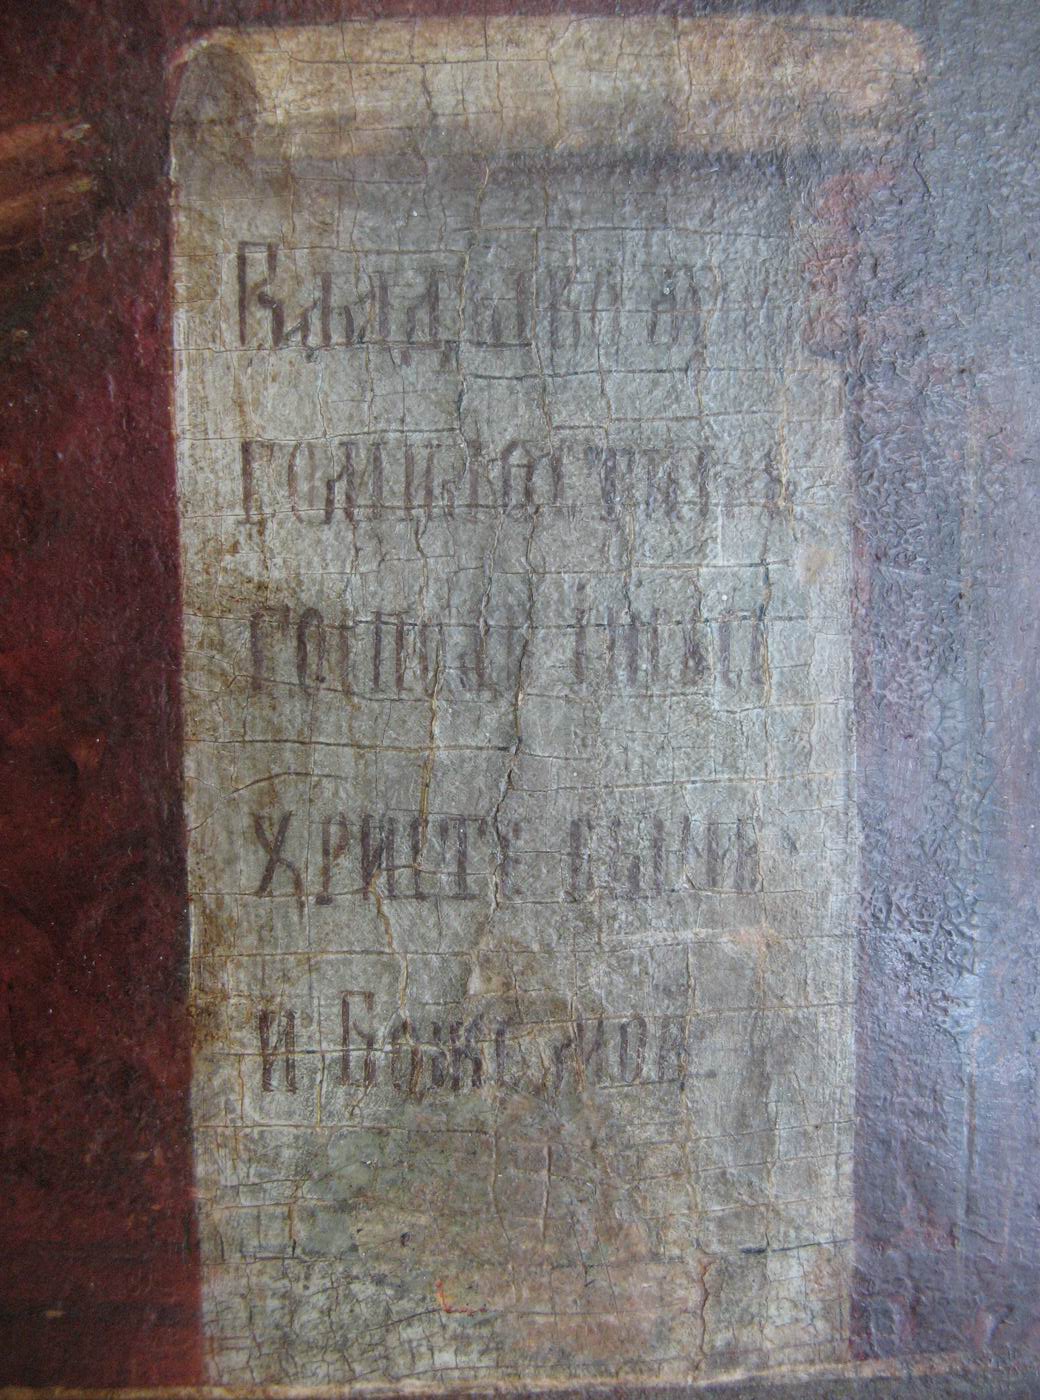 Владыко мно
гомилостиве
Господи
Христе Сыне
и Боже мой